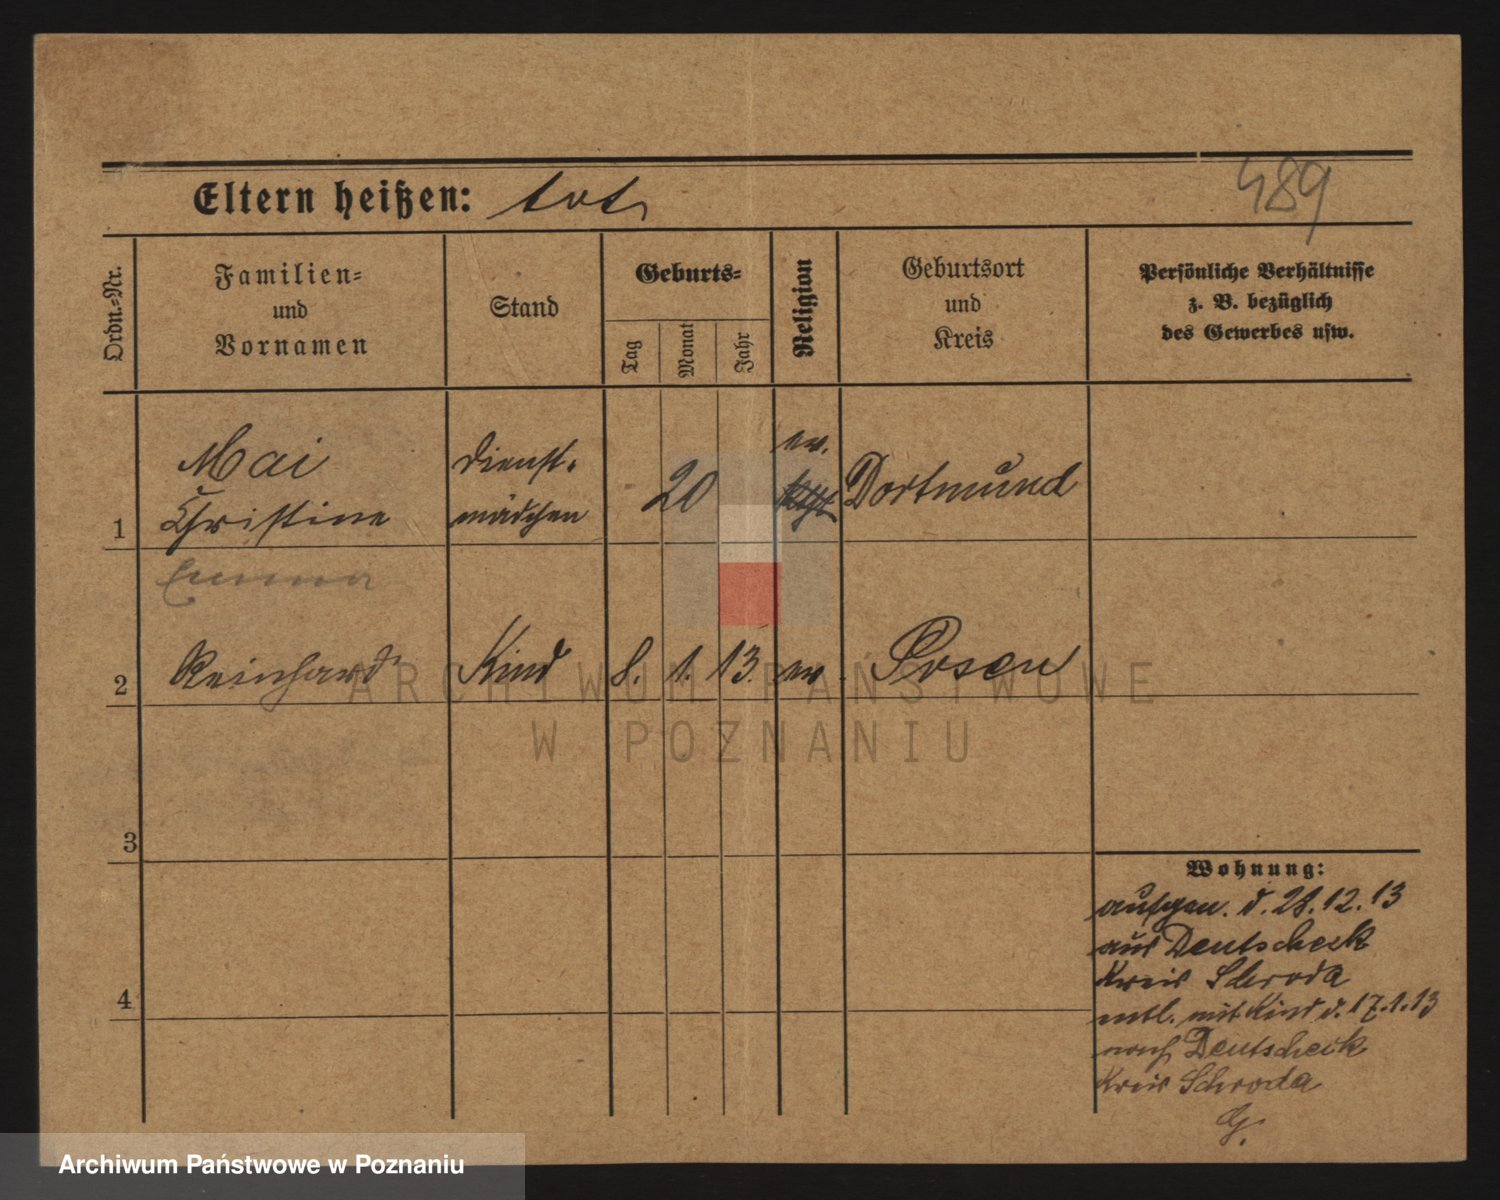 489
Eltern heißen: tot
Ordn.-Nr.
Familien-
und
Vornamen
Stand
Geburts-
Tag
Monat
Jahr
Religion
Geburtsort
und
Kreis
Persönliche Verhältnisse
z. B. bezüglich
des Gewerbes usw.
1
Mai
Christine
Dienst-
mädchen
20
ev.
Dortmund
Emma
2
Reinhard
Kind
8. 1. 13.
ev.
Posen
3
4
Wohnung:
aufgen. d. 28.12.13
aus Deutscheck
Kreis Schroda
entl. mit Kind d. 17.1.13
nach Deutscheck
Kreis Schroda
G.
ARCHIWUM PAŃSTWOWE
W POZNANIU
Archiwum Państwowe w Poznaniu